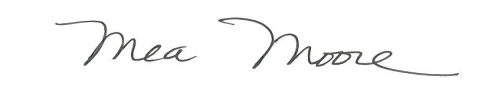 Mea Moore